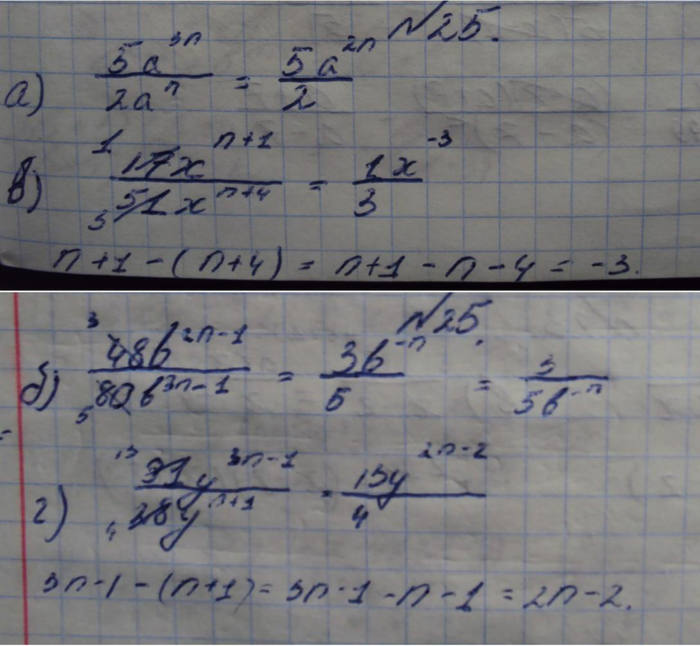 №25.
а) 5a^{3n} / 2a^{n} = 5a^{2n} / 2
в) 1 17x^{n+1} / 3 51x^{n+4} = 1x^{-3} / 3
n+1-(n+4) = n+1-n-4 = -3.
№25.
б) 3 48b^{2n-1} / 5 80b^{3n-1} = 3b^{-n} / 5 = 3 / 5b^{-n}
г) 13 91y^{3n-1} / 4 28y^{n+1} = 13y^{2n-2} / 4
3n-1-(n+1) = 3n-1-n-1 = 2n-2.